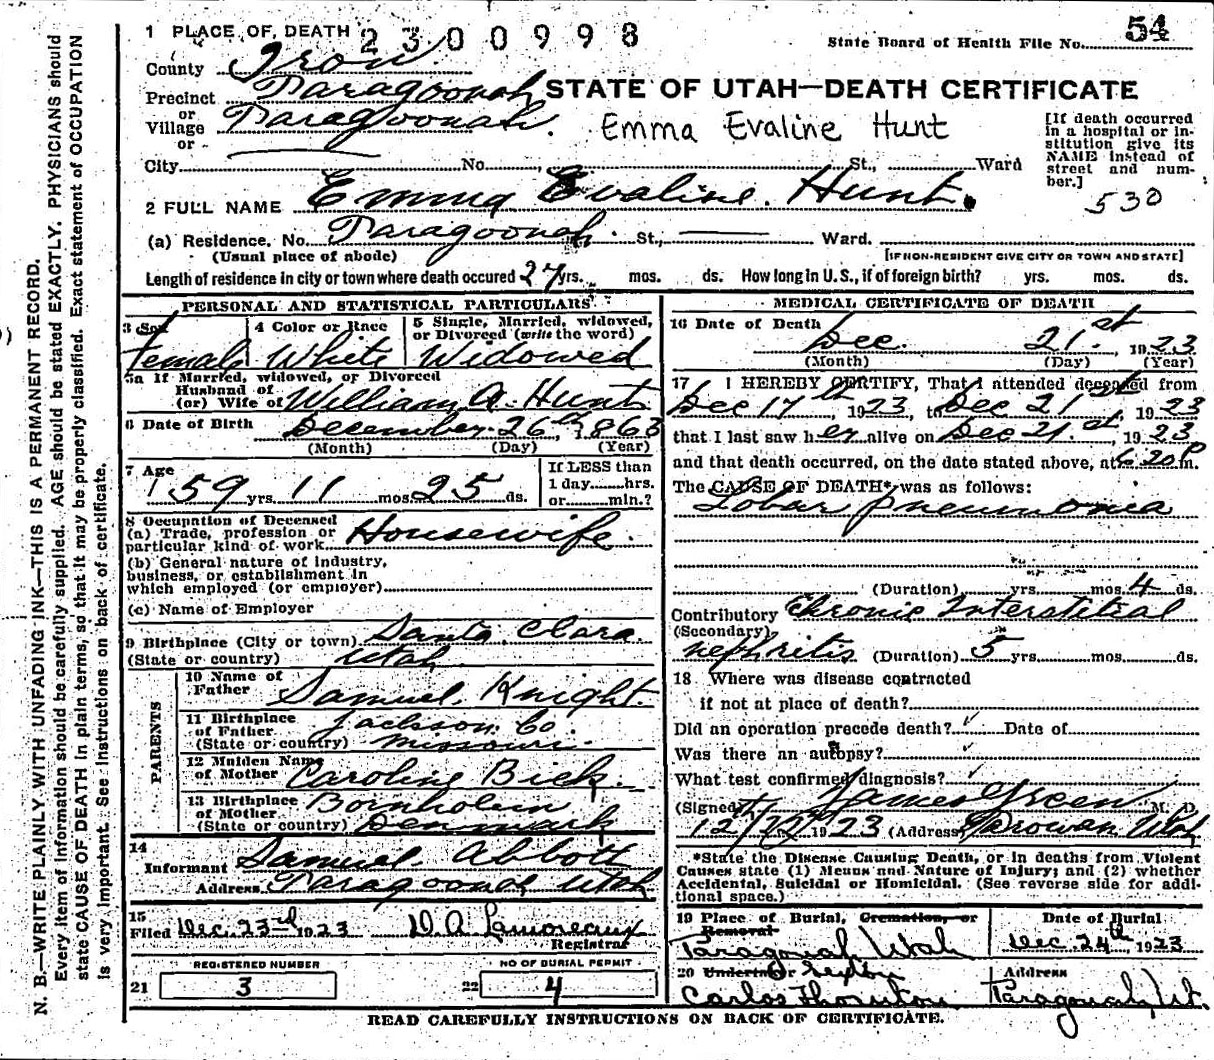 1 PLACE OF DEATH 2300998
State Board of Health File No. 54
County Iron
Precinct Paragoonah
or
Village Paragoonah.
or
STATE OF UTAH—DEATH CERTIFICATE
Emma Evaline Hunt
[If death occurred
in a hospital or in-
stitution give its
NAME instead of
street and num-
ber.]
530
City No. St., Ward
2 FULL NAME Emma Evaline Hunt.
(a) Residence. No. Paragoonah. St., Ward.
(Usual place of abode) [IF NON-RESIDENT GIVE CITY OR TOWN AND STATE]
Length of residence in city or town where death occured 27 yrs. mos. ds. How long in U. S., if of foreign birth? yrs. mos. ds.
PERSONAL AND STATISTICAL PARTICULARS
3 Sex
Female
4 Color or Race
White
5 Single, Married, widowed,
or Divorced (write the word)
Widowed
5a If Married, widowed, or Divorced
Husband of
(or) Wife of William A. Hunt
6 Date of Birth December 26th, 1863
(Month) (Day) (Year)
7 Age
59 yrs. 11 mos. 25 ds.
If LESS than
1 day......hrs.
or......min.?
8 Occupation of Deceased
(a) Trade, profession or
particular kind of work Housewife.
(b) General nature of industry,
business, or establishment in
which employed (or employer)
(c) Name of Employer
9 Birthplace (City or town) Santa Clara
(State or country) Utah
PARENTS
10 Name of
Father Samuel Knight.
11 Birthplace
of Father Jackson Co.
(State or country) Missouri.
12 Maiden Name
of Mother Caroline Beck.
13 Birthplace
of Mother Bornholm
(State or country) Denmark
14
Informant Samuel Abbott
Address Paragoonah Utah
15
Filed Dec. 23rd 1923 W A Lamoreaux
Registrar
REGISTERED NUMBER
21 3
NO OF BURIAL PERMIT
22 4
MEDICAL CERTIFICATE OF DEATH
16 Date of Death
Dec. 21.st, 1923
(Month) (Day) (Year)
17 I HEREBY CERTIFY, That I attended deceased from
Dec 17th, 1923, to Dec 21st, 1923
that I last saw her alive on Dec 21.st, 1923
and that death occurred, on the date stated above, at 6 20 P m.
The CAUSE OF DEATH* was as follows:
Lobar pneumonia
(Duration) yrs. mos. 4 ds.
Contributory Chronic Interstitial
(Secondary)
nephritis (Duration) 5 yrs. mos. ds.
18 Where was disease contracted
if not at place of death?
Did an operation precede death? Date of
Was there an autopsy?
What test confirmed diagnosis?
(Signed) James Green M. D.
12/22 1923 (Address) Parowan Utah
*State the Disease Causing Death, or in deaths from Violent
Causes state (1) Means and Nature of Injury; and (2) whether
Accidental, Suicidal or Homicidal. (See reverse side for addi-
tional space.)
19 Place of Burial, Cremation, or
Removal
Paragonah Utah
Date of Burial
Dec. 24th 1923
20 Undertaker or Sexton
Carlos Thornton
Address
Paragonah, Ut.
READ CAREFULLY INSTRUCTIONS ON BACK OF CERTIFICATE.
N. B.—WRITE PLAINLY WITH UNFADING INK—THIS IS A PERMANENT RECORD.
Every item of information should be carefully supplied. AGE should be stated EXACTLY. PHYSICIANS should
state CAUSE OF DEATH in plain terms, so that it may be properly classified. Exact statement of OCCUPATION
is very important. See instructions on back of certificate.